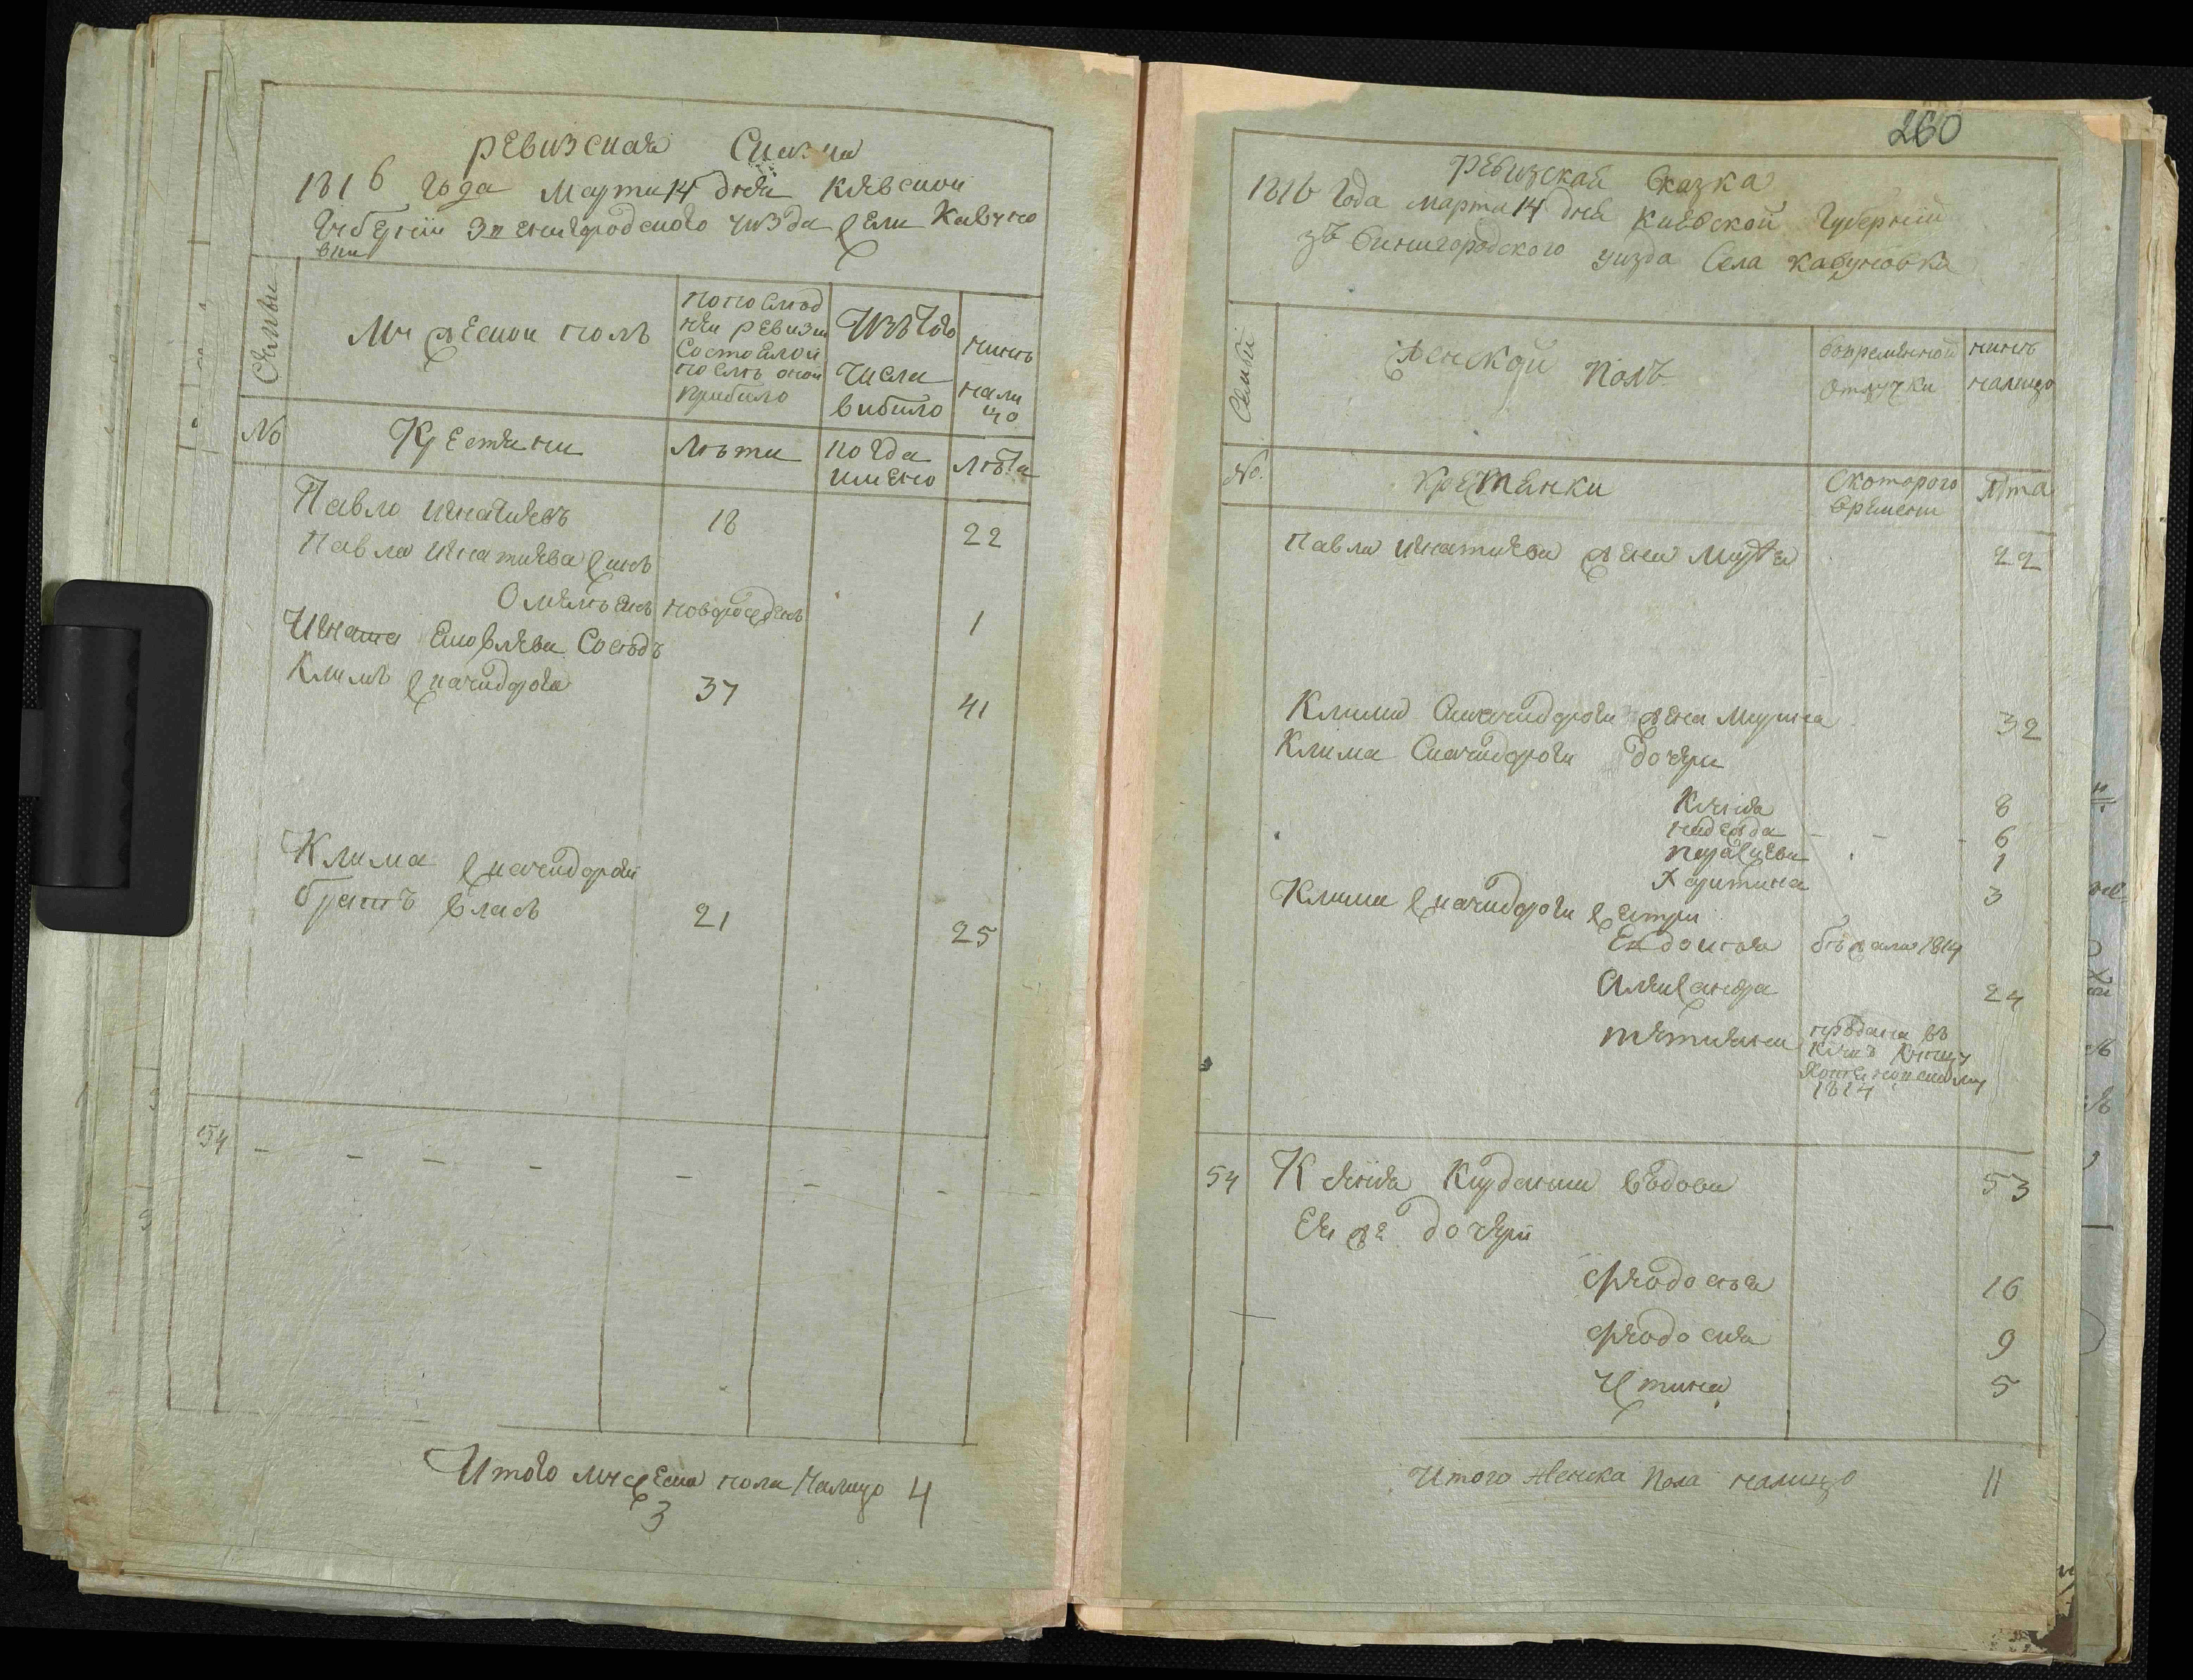 ревизская Сказка
1816 года марта 14 дня киевской
губернии Звенигородского уизда села Кавуно
вки
Семьи
Мужеской полъ
по послѣд
ней ревизи
Состояло и
послѣ оной
прибило
Изъ того
Числа
вибило
нинѣ
нали
цо
№
Крестяни
лѣта
когда
имено
лѣта
Павло игнатиевъ
18
22
Павла игнатиева синъ
Омелянъ новорожденъ
1
Игната Яковлева Сосѣдъ
Климъ
37
41
Клима
братъ власъ
21
25
54 - - - - - - -
Итого мужеска пола налицо 4
3
260
Ревизская Сказка
1816 года марта 14 дня Киевской Губерній
звенигородского уизда Села кавуновка
Семьи
женской полъ
вовременной
отлучки
нинѣ
налицо
№.
крестянки
Скоторого
времени
Лѣта
Павла игнатиева жена Марфа
22
Клима жена Марина
32
Клима дочери
Ксения 8
6
параскева 1
Харитина 3
Клима сестри
Евдокия бѣжала 1814
Александра
24
татияна
продана въ
1814
54 Ксения вдова
53
Ея же дочери
феодосия
16
феодосия
9
Устина
5
Итого женска пола налицо 11